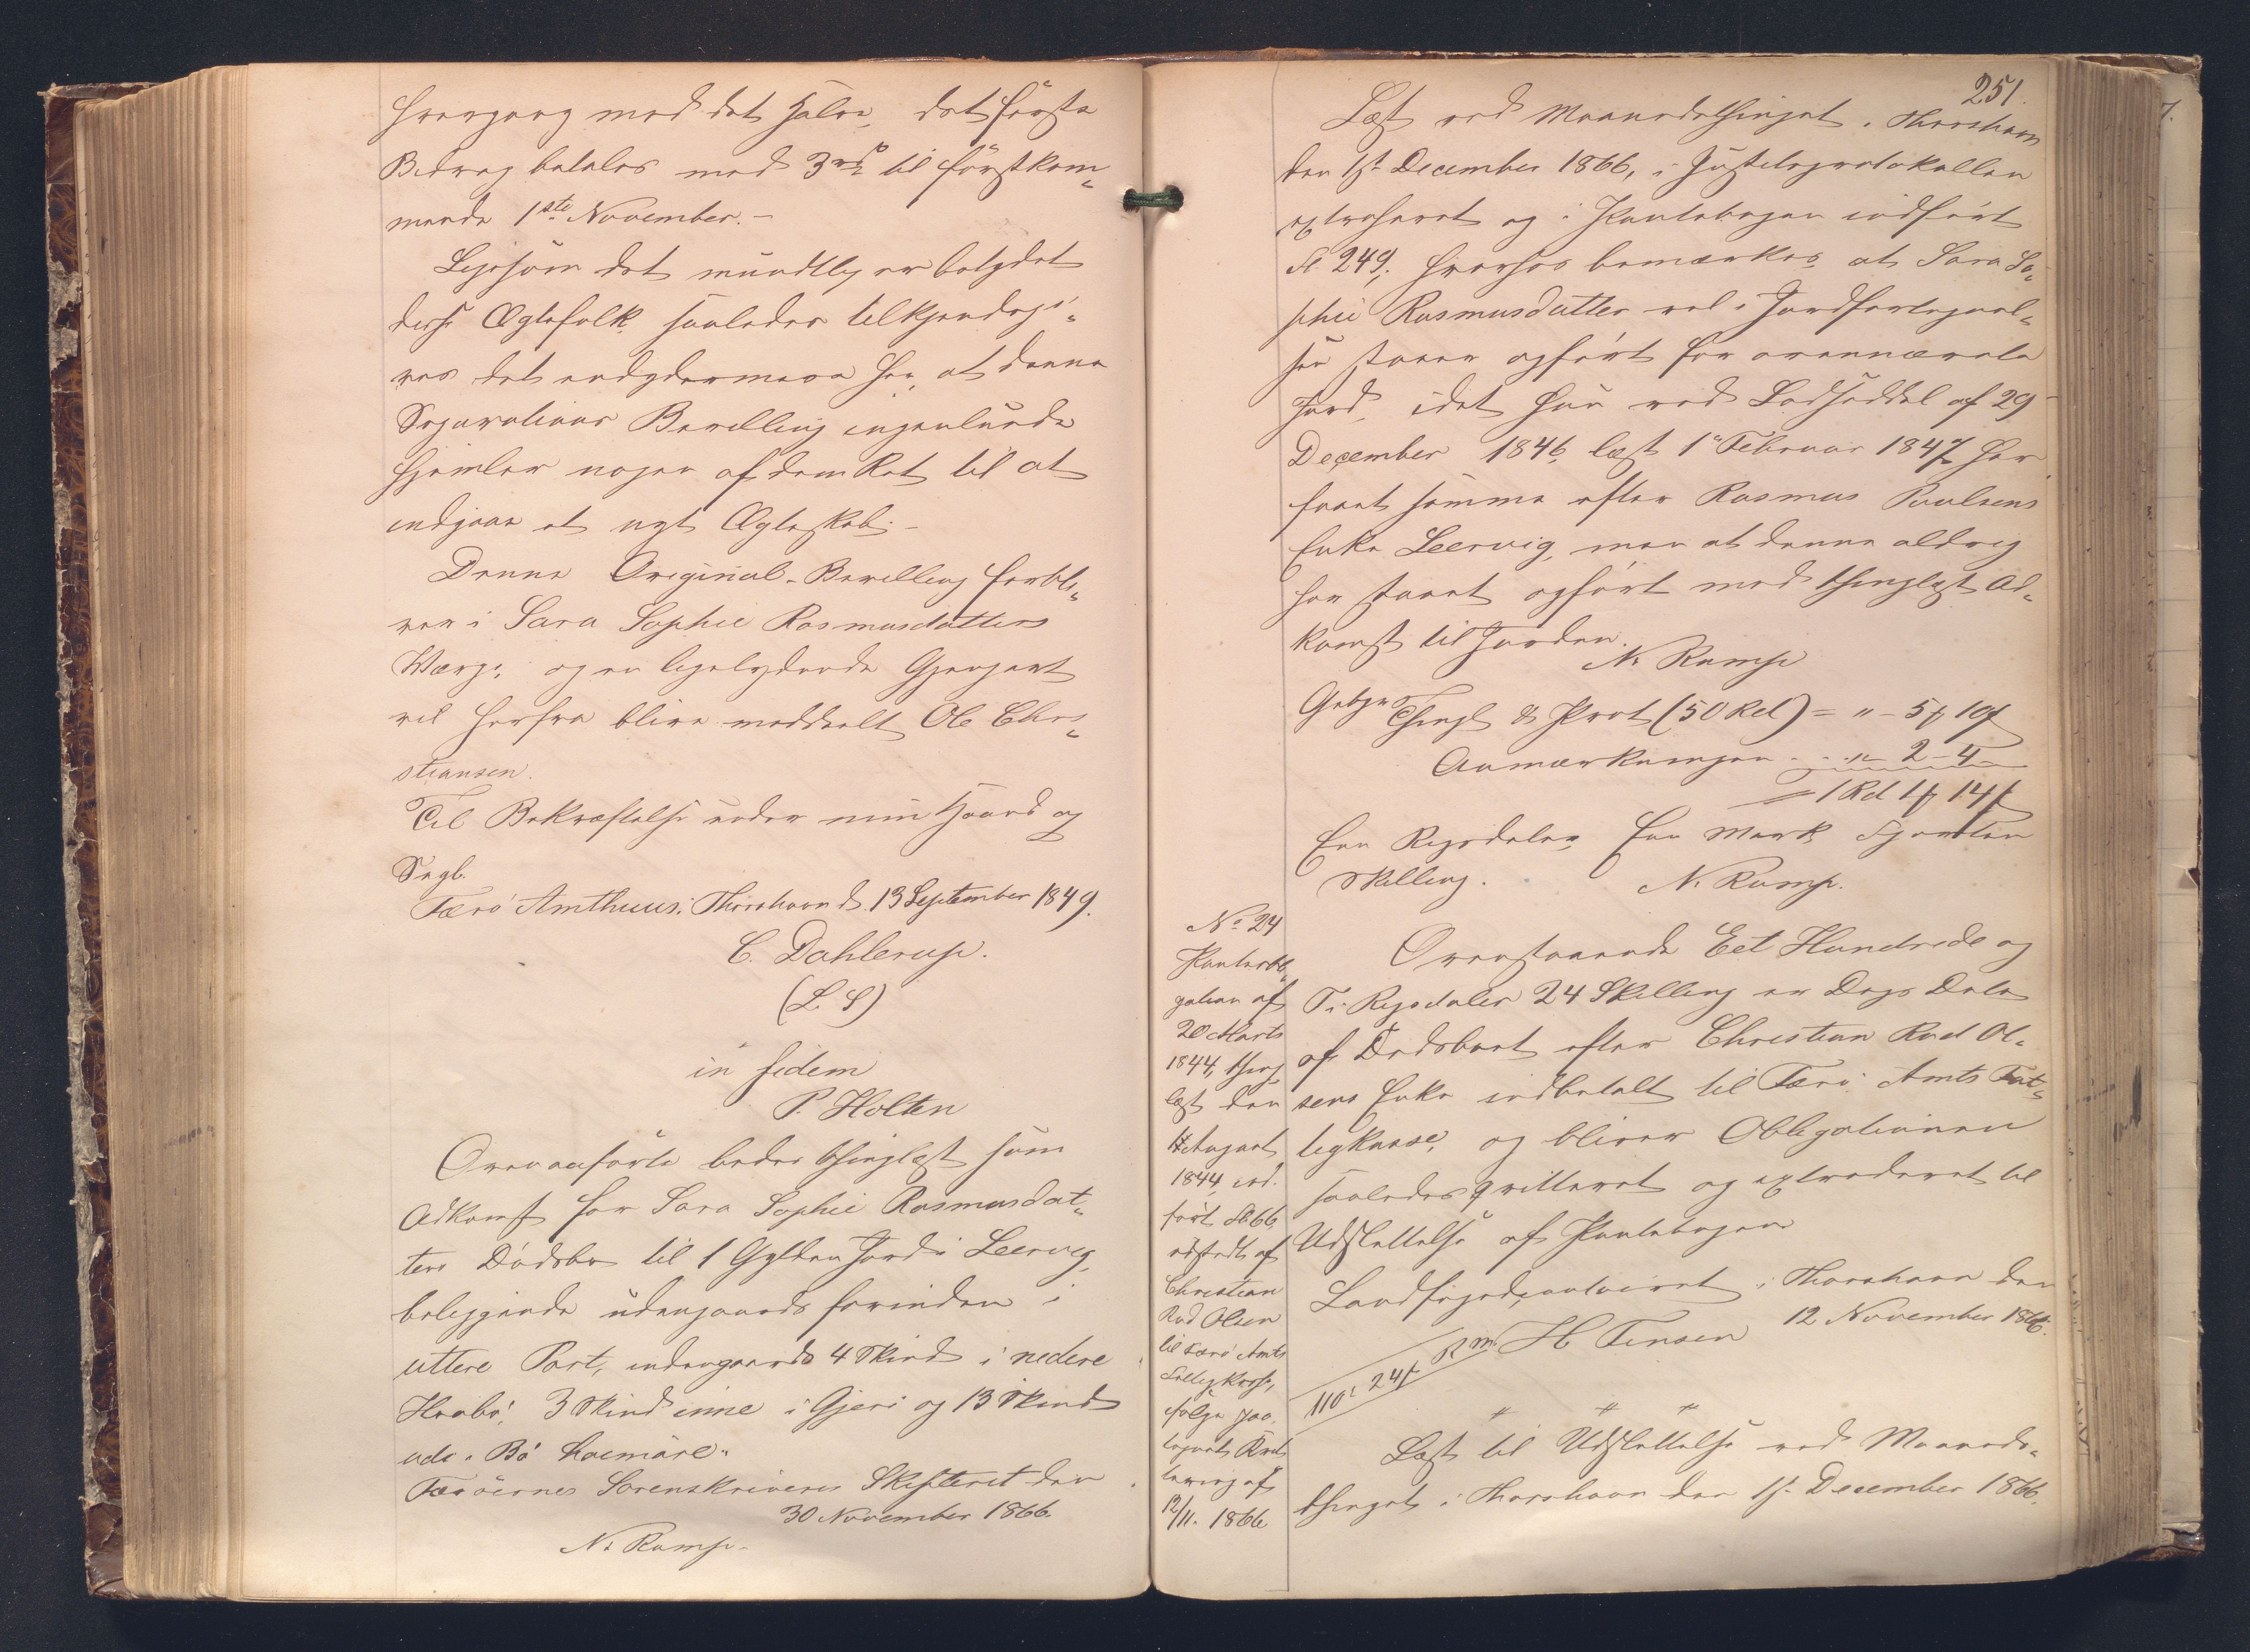 hvergang med det halve, det første
Bidrag betales med 3 rd til førstkom„
mende 1ste November. –
Ligesom det mundtlig er betydet
disse Ægtefolk saaledes tilkjendegi„
ves det endydermere her, at denne
Separations Bevilling ingenlunde
hjemler nogen af dem Ret til at
indgaae et nyt Ægteskab. –
Denne Original-Bevilling forbli„
ver i Sara Sophie Rasmusdatters
Værge, og en ligelydende Gjenpart
vil herfra blive meddeelt Ole Chri„
stiansen.
Til Bekræftelse under min Haand og
Segl.
Færö Amthuus, Thorshavn d. 13 September 1849.
C. Dahlerup.
(L.S)
in fidem
P. Holten
Ovenanførte bedes thinglæst som
Adkomst for Sara Sophie Rasmusdat„
ters Dödsbo til 1 Gylden Jord i Leervig,
beliggende udengaards forinden i
uttere Part, indengaards 4 Skind i nedere
Haabö, 3 Skind inne i Gjeri og 13 Skind
ude i Bö
Færöernes Sorenskriveri Skifteret den
30 November 1866.
N. Rump.
251.
Læst ved Maanedsthinget i Thorshavn
den 1st December 1866, i Justitsprotokollen
extraheret og i Pantebogen indført
Fol. 249, hvorhos bemærkes, at Sara So„
phie Rasmusdatter vel i Jordfortegnel„
sen staaer opført for ovennævnte
Jord, idet hun ved Lodseddel af 29
December 1846, læst 1 Februar 1847 har
faaet samme efter Rasmus Poulsens
Enke Leervig, men at denne aldrig
har staaet opført med thinglæst Ad„
komst til Jorden.
N. Rump
Gebyr Thingl & Prot (50 Rd) = " – 5 10
Anmærkningen " 2 – 4
= 1 Rd 1 14
Een Rigsdaler Een Mark Fjorten
Skilling.
N. Rump.
No 24
Pantobli„
gation af
20 Marts
1844, thing
læst den
August
1844, ind„
ført Fol 66,
udstedt af
Christian
Rud Olsen
til Færö Amts
Fattigkasse,
følge paa„
tegnet Qvit„
tering af
12/11. 1866
Ovenstaaende Eet Hundrede og
Ti Rigsdaler 24 Skilling er Dags Dato
af Dødsboet efter Christian Rud Ol„
sens Enke indbetalt til Færö Amts Fat„
tigkasse, og bliver Obligationen
saaledes qvitteret og extraderet til
Udslettelse af Pantebogen
Landfogedcontoiret i Thorshavn den
12 November 1866.
110 24 Rm H Tensen
Læst til Udslettelse ved Maaneds„
thinget i Thorshavn den 1st December 1866.